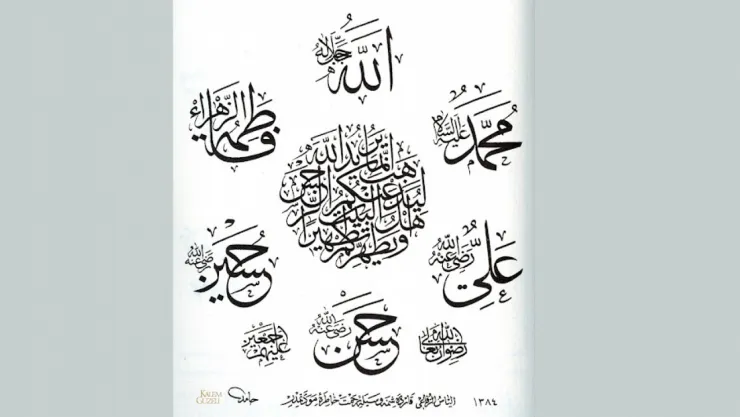 الله جل جلاله
محمد عليه السلام
فاطمة الزهراء
إنما يريد الله ليذهب عنكم الرجس أهل البيت ويطهركم تطهيرا
علي رضي الله عنه
حسين رضي الله عنه
حسن رضي الله عنه
رضوان الله تعالى
عليهم أجمعين
١٣٨٤
حامد
KALEM GÜZELİ